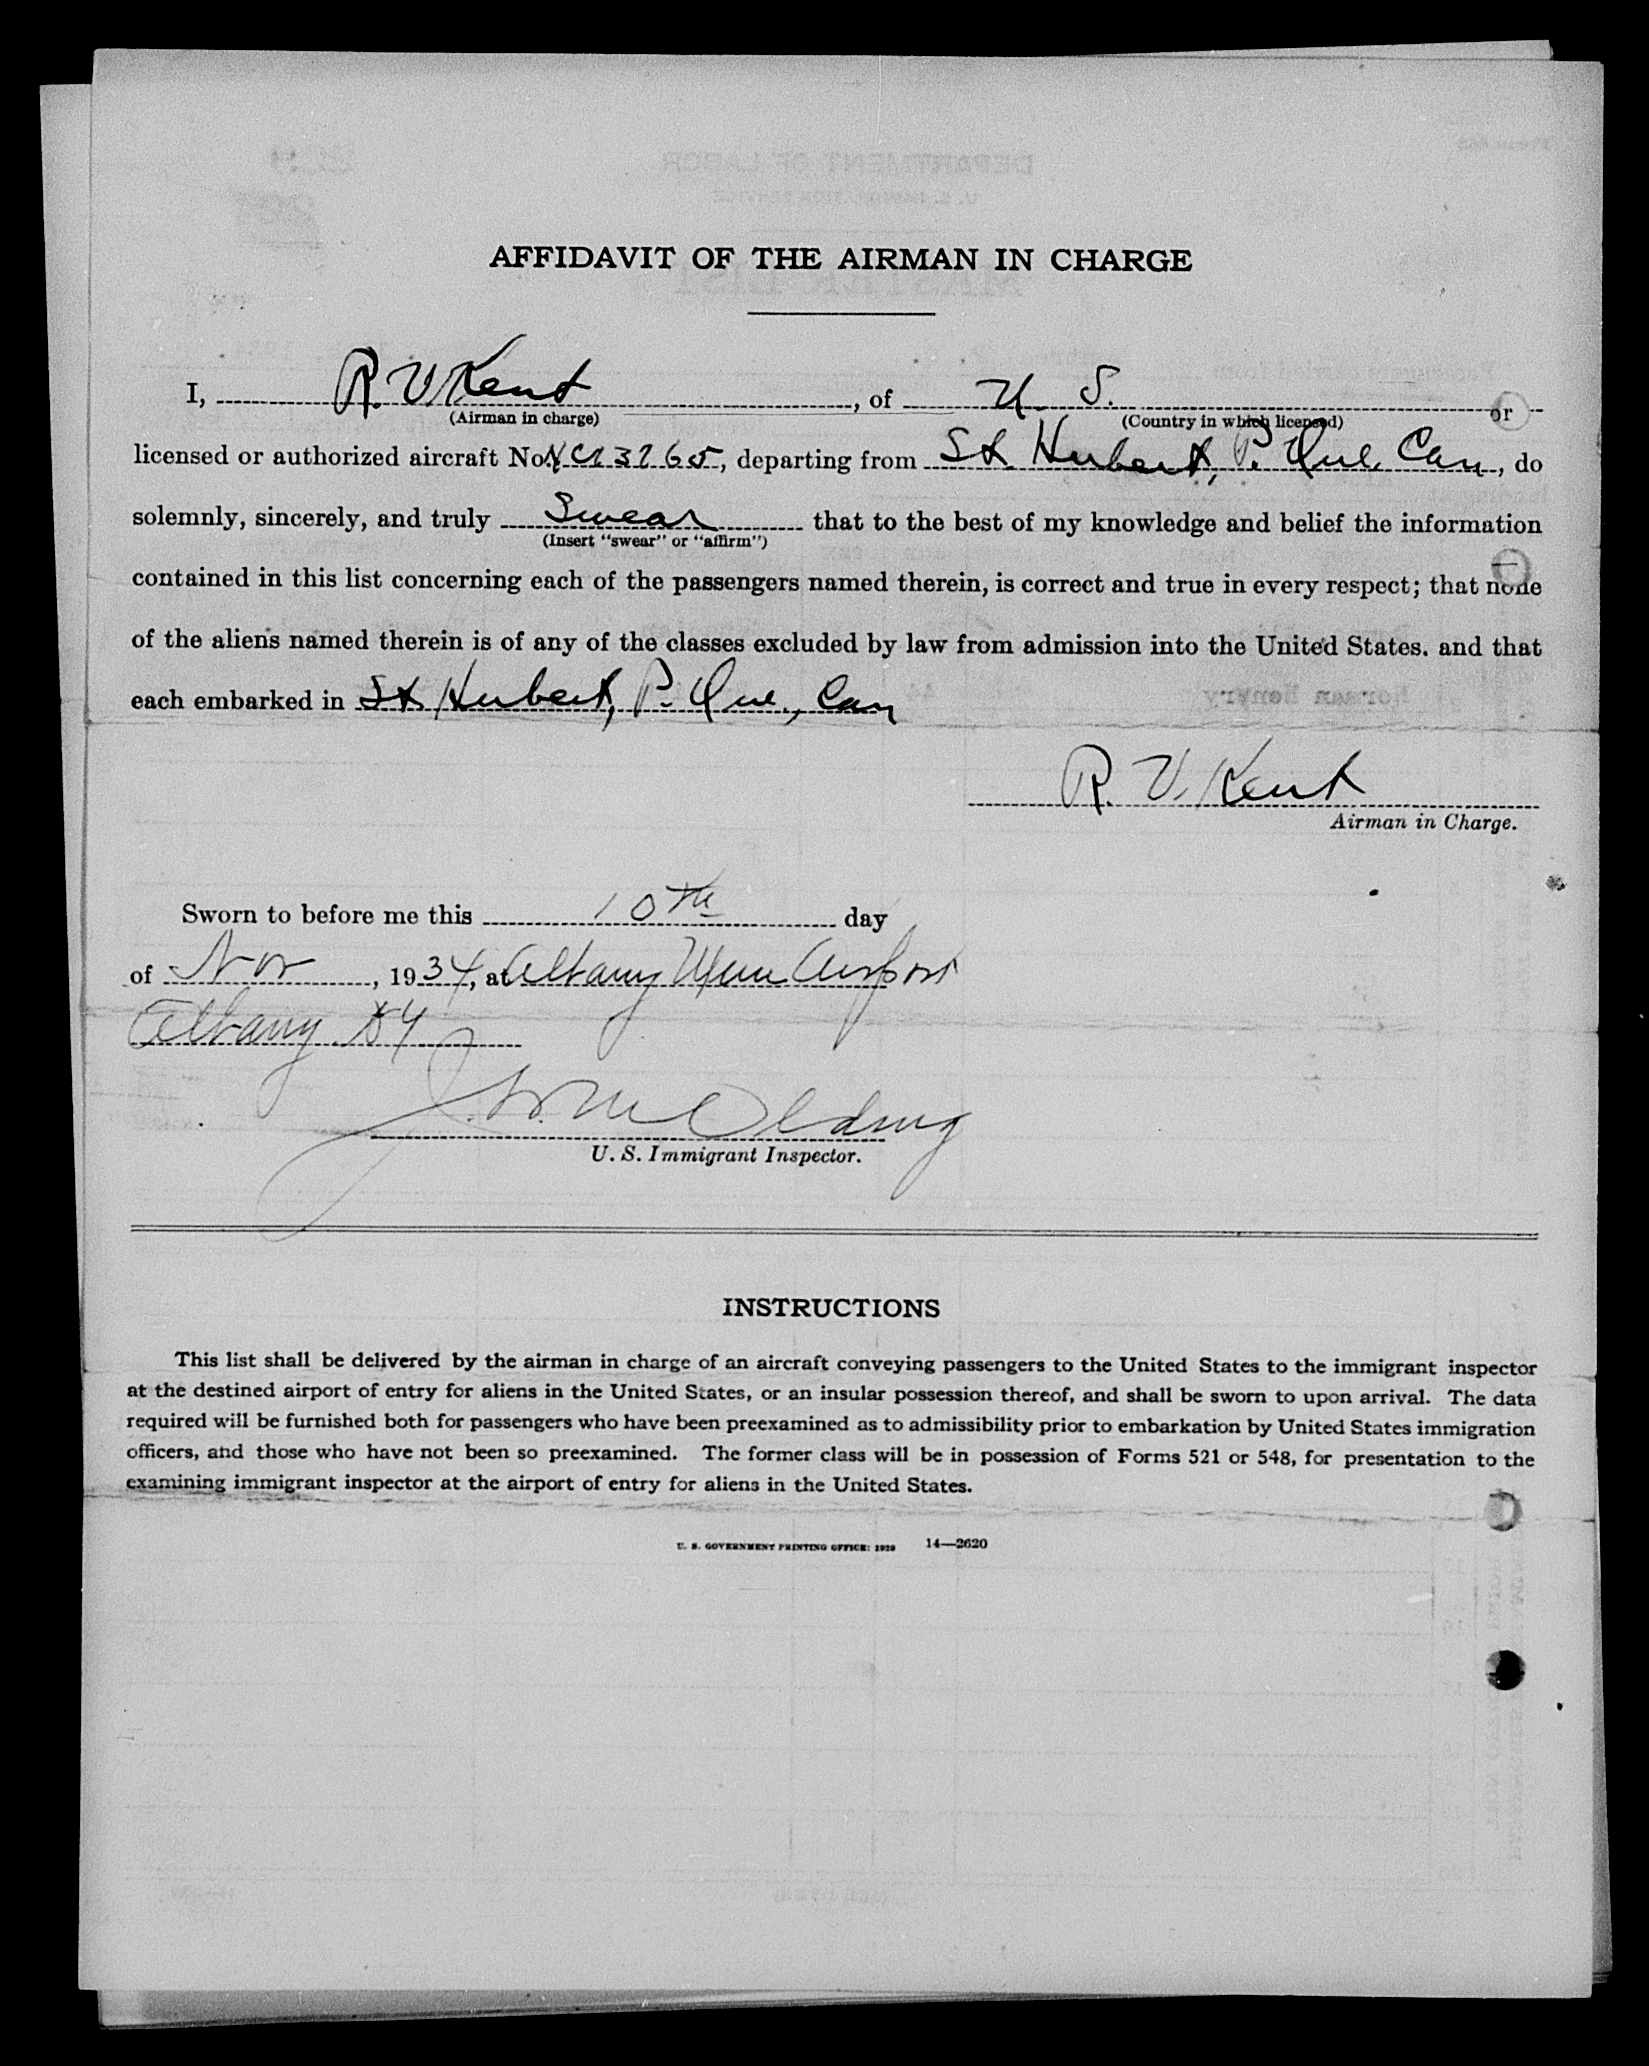 AFFIDAVIT OF THE AIRMAN IN CHARGE
I, R. V. Kent, of U. S. or
(Airman in charge) (Country in which licensed)
licensed or authorized aircraft No. NC13765, departing from St Hubert, P. Que. Can, do
solemnly, sincerely, and truly Swear that to the best of my knowledge and belief the information
(Insert "swear" or "affirm")
contained in this list concerning each of the passengers named therein, is correct and true in every respect; that none
of the aliens named therein is of any of the classes excluded by law from admission into the United States. and that
each embarked in St Hubert, P. Que., Can
R. V. Kent
Airman in Charge.
Sworn to before me this 10th day
of Nov, 1934, at Albany Mun Airport
Albany NY
U. S. Immigrant Inspector.
INSTRUCTIONS
This list shall be delivered by the airman in charge of an aircraft conveying passengers to the United States to the immigrant inspector
at the destined airport of entry for aliens in the United States, or an insular possession thereof, and shall be sworn to upon arrival. The data
required will be furnished both for passengers who have been preexamined as to admissibility prior to embarkation by United States immigration
officers, and those who have not been so preexamined. The former class will be in possession of Forms 521 or 548, for presentation to the
examining immigrant inspector at the airport of entry for aliens in the United States.
U. S. GOVERNMENT PRINTING OFFICE: 1929 14—2620